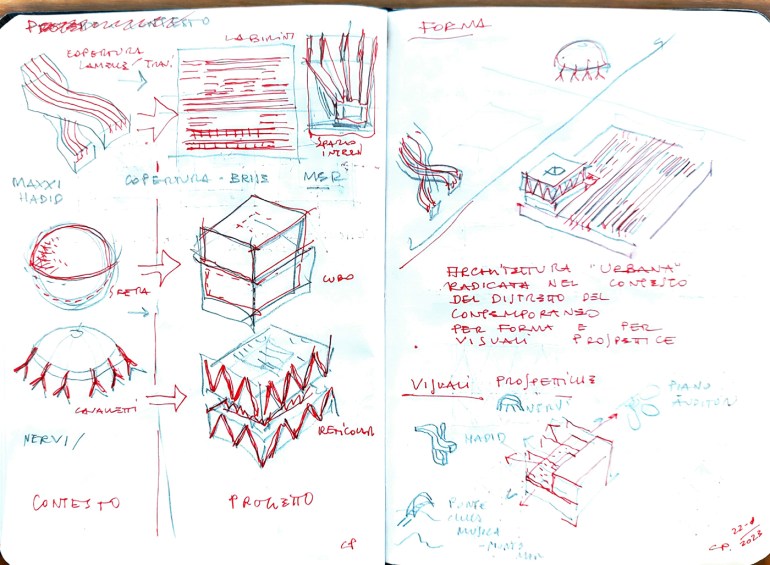 COPERTURA
LAMELLE / TRAVI
LABIRINTI
SPAZIO
INTERN
MAXXI
HADID
COPERTURA - BRISE
MSR
SFERA
CUBO
CAVALLETTI
RETICOLAR
NERVI/
CONTESTO
PROGETTO
CP
FORMA
ARCHITETTURA "URBANA"
RADICATA NEL CONTESTO
DEL DISTRETTO DEL
CONTEMPORANEO
PER FORMA E PER
VISUALI PROSPETICE
VISUALI PROSPETTICHE
NERVI
PIANO
AUDITORI
HADID
PONTE
DELLA
MUSICA
- MONTE
MAR
CP.
2023